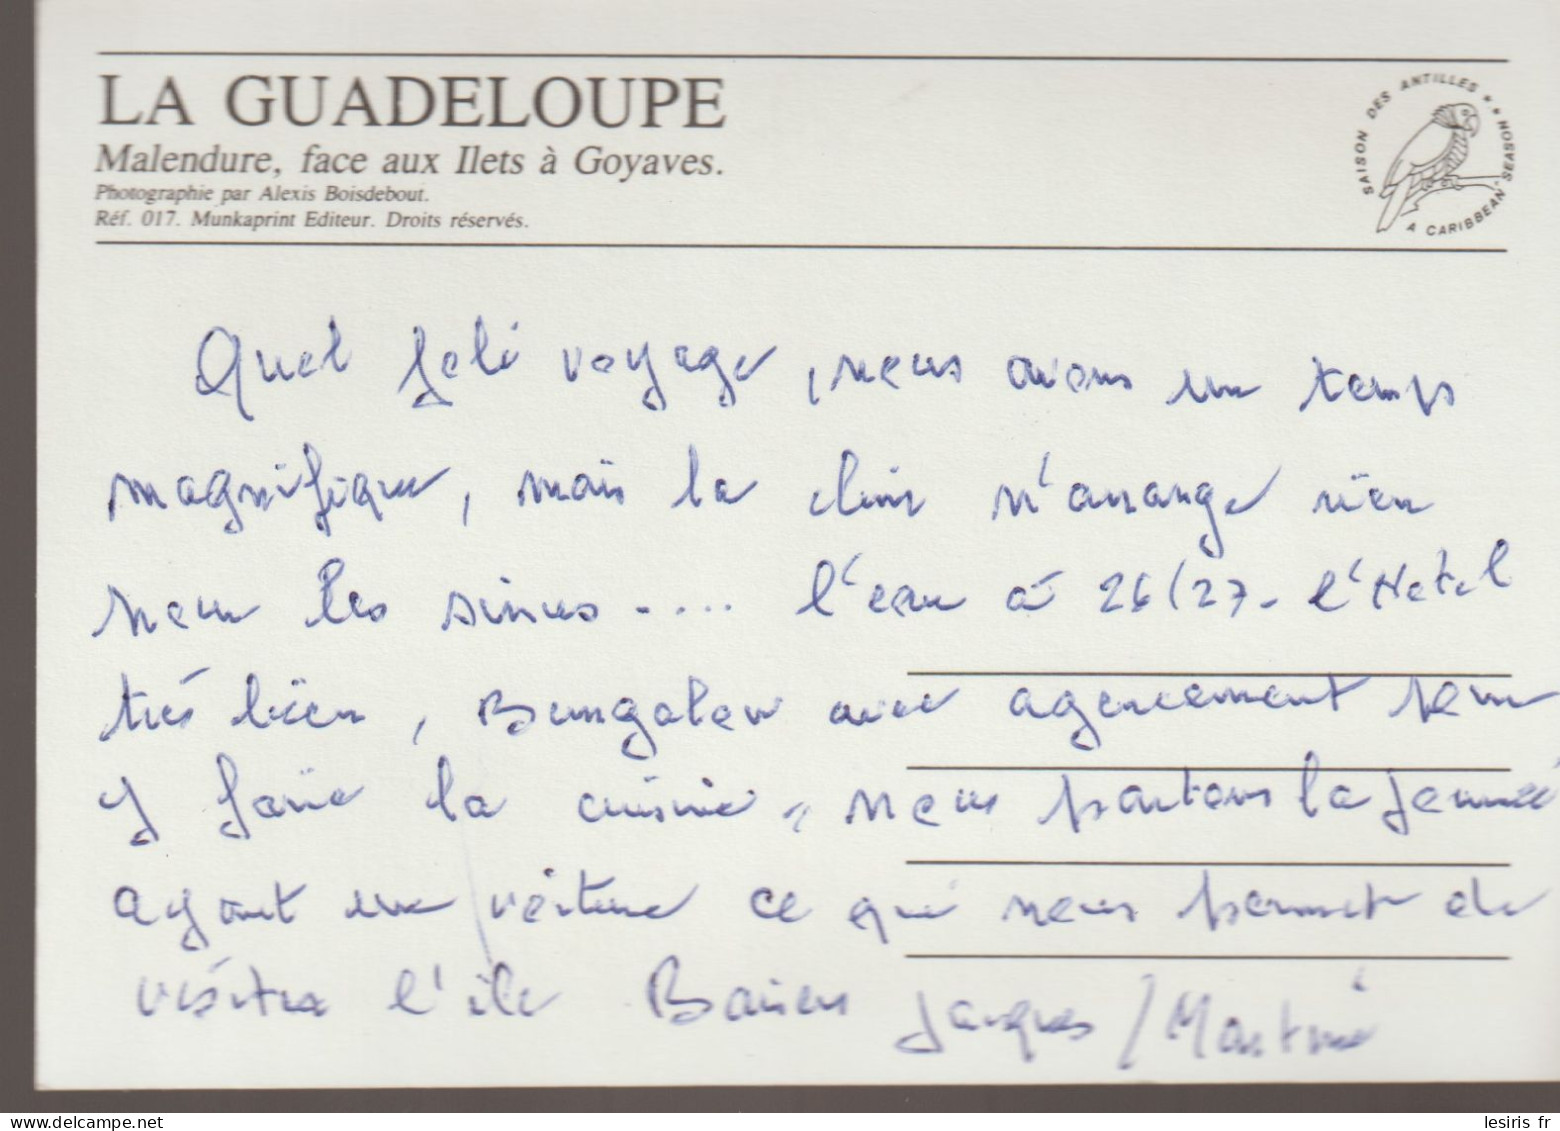 LA GUADELOUPE
Malendure, face aux Ilets à Goyaves.
Photographie par Alexis Boisdebout.
Réf. 017. Munkaprint Editeur. Droits réservés.
SAISON DES ANTILLES * * A CARIBBEAN-SEASON
Quel joli voyage, nous avons un temps
magnifique, mais la clim n'arrange rien
pour les sinus..... l'eau à 26/27 - l'Hotel
très bien, Bungalow avec agencement pour
y faire la cuisine, nous partons la journée
ayant une voiture ce qui nous permet de
visiter l'île Baisers Jacques / Martine
lesiris fr
www.delcampe.net